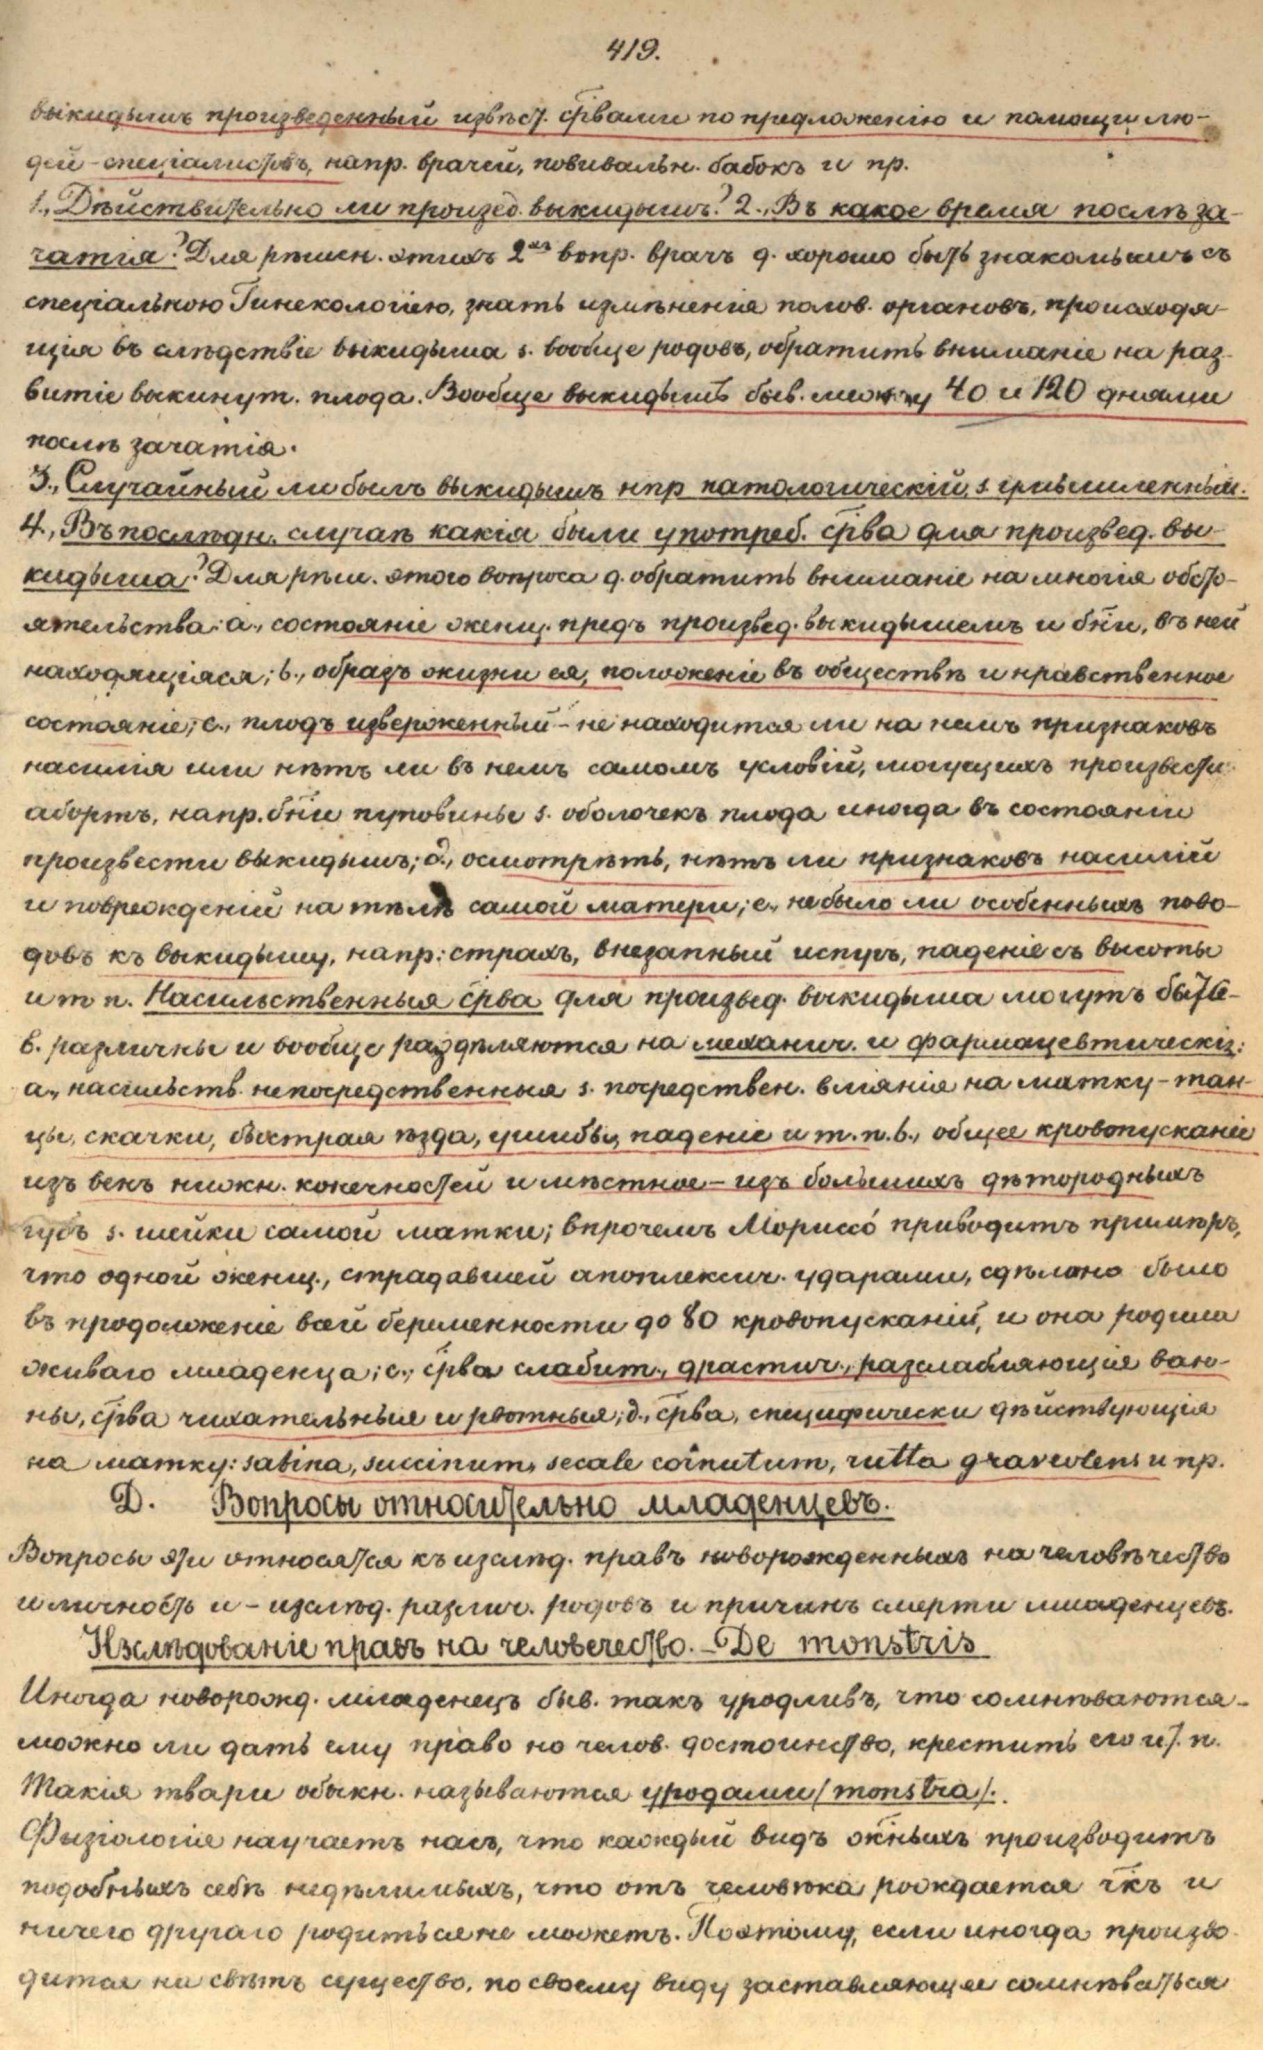 419.
выкидышъ произведенный извѣст. ср̃вами по предложенію и помощи лю-
дей-спеціалистовъ, напр. врачей, повивальн. бабокъ и пр.
1., Дѣйствительно ли произвед. выкидышъ? 2., Въ какое время послѣ за-
чатія? Для рѣшен. этихъ 2хъ вопр. врачъ д. хорошо быть знакомымъ съ
спеціальною Гинекологіею, знать измѣненія полов. органовъ, происходя-
щія въ слѣдствіе выкидыша s. вообще родовъ, обратить вниманіе на раз-
витіе выкинут. плода. Вообще выкидышъ быв. между 40 и 120 днями
послѣ зачатія.
3., Случайный ли былъ выкидышъ нпр патологическій, s.
4., Въ послѣдн. случаѣ какія были употреб. ср̃ва для произвед. вы-
кидыша? Для рѣш. этого вопроса д. обратить вниманіе на многія обсто-
ятельства: a., состояніе женщ. предъ произвед. выкидышемъ и бн̃и, въ ней
находящіяся; b., образъ жизни ея, положеніе въ обществѣ и нравственное
состояніе; c., плодъ изверженный – не находится ли на немъ признаковъ
насилія или нѣтъ ли въ немъ самомъ условій, могущихъ произвести
абортъ, напр. бн̃и пуповины s. оболочекъ плода иногда въ состояніи
произвести выкидышъ; d., осмотрѣть, нѣтъ ли признаковъ насилій
и поврежденій на тѣлѣ самой матери; e., не было ли особенныхъ пово-
довъ къ выкидышу, напр: страхъ, внезапный испугъ, паденіе съ высоты
и т п. Насильственныя ср̃ва для произвед. выкидыша могутъ быть
в. различны и вообще раздѣляются на механич. и фармацевтическія:
a., насильств. непосредственныя s. посредствен. вліянія на матку – тан-
цы, скачки, быстрая ѣзда, ушибы, паденіе и т. п. b., общее кровопусканіе
изъ венъ нижн. конечностей и мѣстное – изъ большихъ дѣтородныхъ
губъ s. шейки самой матки; впрочемъ Мориссо́ приводитъ примѣръ,
что одной женщ., страдавшей апоплексич. ударами, сдѣлано было
въ продолженіе всей беременности до 80 кровопусканій, и она родила
живаго младенца; c., ср̃ва слабит., драстич., разслабляющія ван-
ны, ср̃ва чихательныя и рвотныя; d., ср̃ва, специфически дѣйствующія
на матку: sabina, succinum, secale cornutum, rutta graveolens и пр.
D. Вопросы относительно младенцевъ.
Вопросы эти относятся къ изслѣд. правъ новорожденныхъ на человѣчество
и личность и – изслѣд. различ. родовъ и причинъ смерти младенцевъ.
Изслѣдованіе правъ на человечество. – De monstris
Иногда новорожд. младенецъ быв. такъ уродливъ, что сомнѣваются –
можно ли дать ему право на челов. достоинство, крестить его и т. п.
Такія твари обыкн. называются уродами (monstra).
Физіологія научаетъ насъ, что каждый видъ жн̃ыхъ производитъ
подобныхъ себѣ недѣлимыхъ, что отъ человѣка рождается чк̃ъ и
ничего другаго родиться не можетъ. Поэтому, если иногда произво-
дится на свѣтъ существо, по своему виду заставляющее сомнѣваться